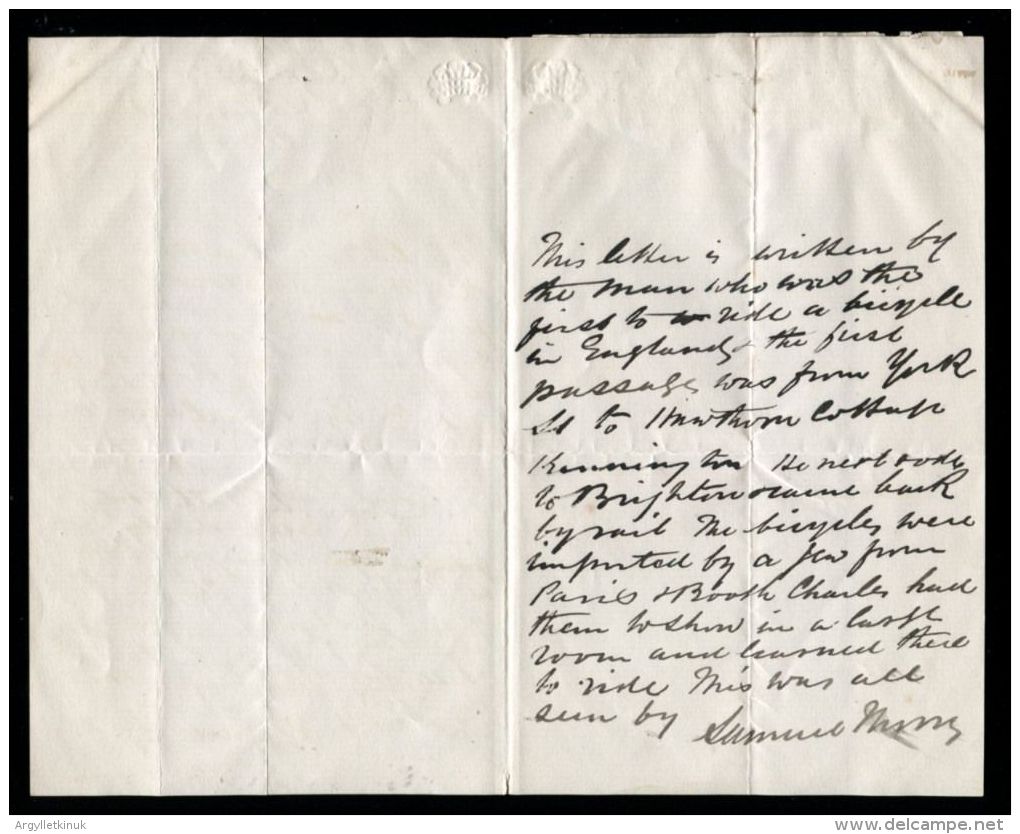 This letter is written by
the man who was the
first to ride a bicycle
in England & the first
passage was from York
St to Hawthorn Cottage
Kennington He next rode
to Brighton & came back
by rail The bicycles were
imported by a Jew from
Paris & Booth Charles had
them to show in a large
room and learned there
to ride This was all
seen by Samuel
Argylletkinuk
www.delcampe.net